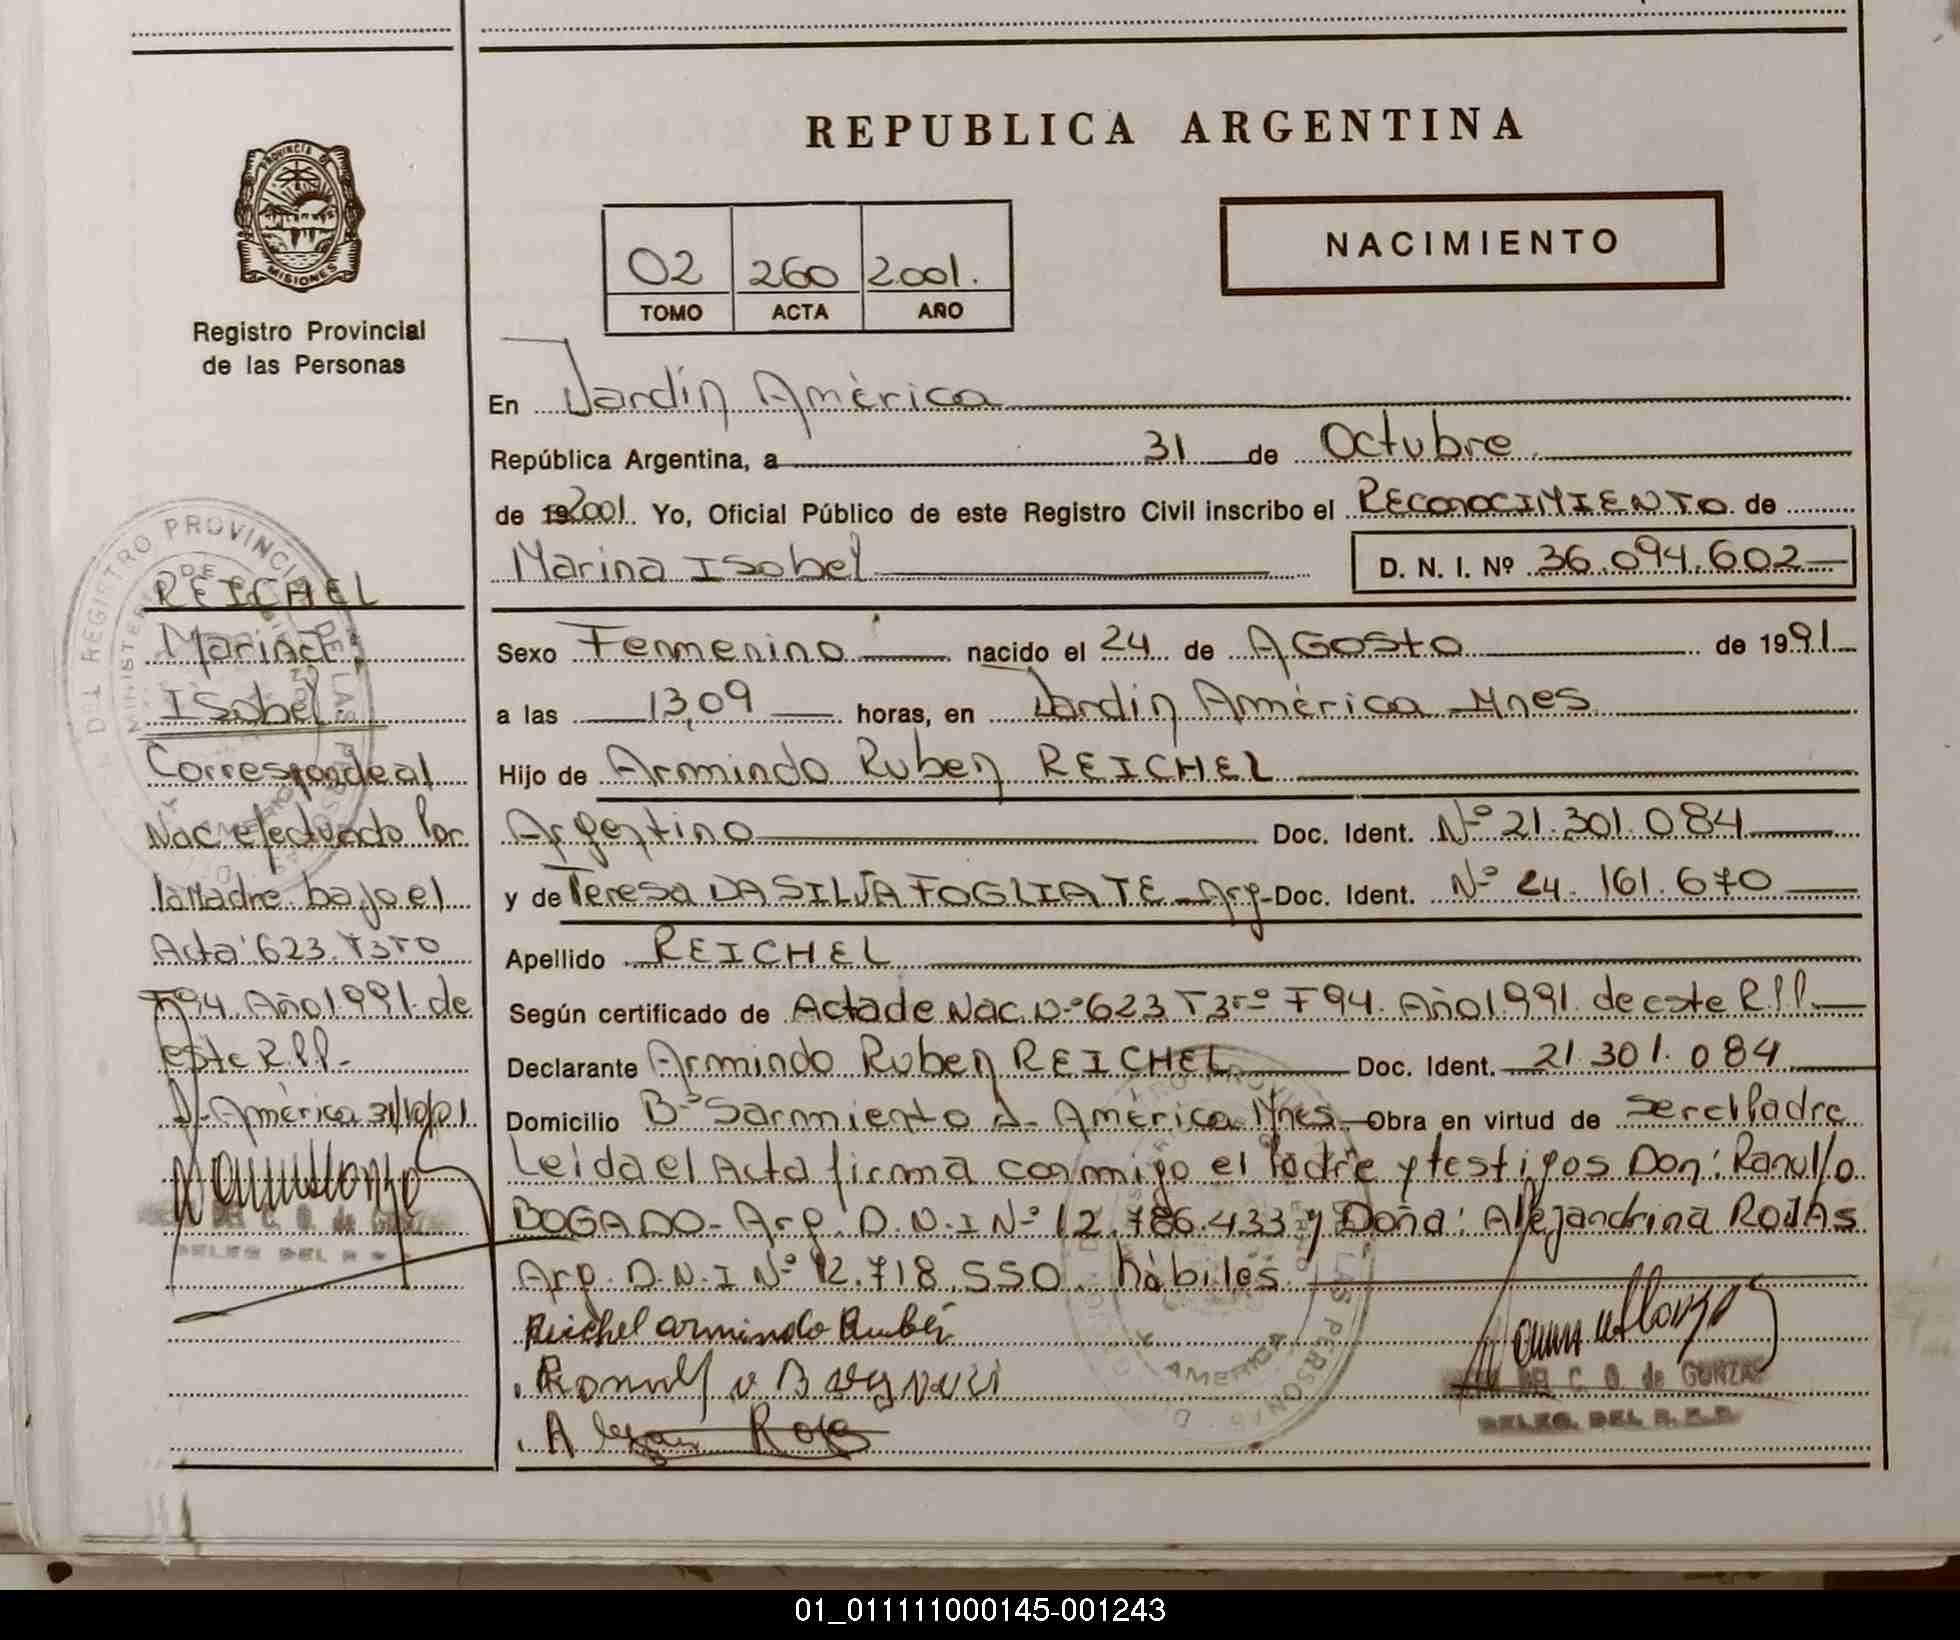 REPUBLICA ARGENTINA
PROVINCIA DE
MISIONES
Registro Provincial
de las Personas
02 260 2.001.
TOMO ACTA AÑO
NACIMIENTO
En Jardín América
República Argentina, a 31 de Octubre
de 192001. Yo, Oficial Público de este Registro Civil inscribo el RECONOCIMIENTO de
Marina Isabel D. N. I. Nº 36.094.602
Sexo Femenino nacido el 24 de AGosto de 1991
a las 13,09 horas, en Jardín América Mnes
Hijo de Armindo Ruben REICHEL
Argentino Doc. Ident. Nº 21.301.084
y de Teresa DA SILVA FOGLIATE - Arg- Doc. Ident. Nº 24.161.670
Apellido REICHEL
Según certificado de Acta de Nac. Nº 623 T3ro F94. Año 1.991. de este R.P.P.
Declarante Armindo Ruben REICHEL Doc. Ident. 21.301.084
Domicilio Bº Sarmiento J- América Mnes Obra en virtud de ser el Padre
Leida el Acta firma conmigo el Padre y testigos Don: Ranulfo
BOGADO - Arg. D.N.I Nº 12.786.433 y Doña: Alejandrina ROJAS
Arg. D.N.I Nº 12.718.550. hábiles
Reichel armindo Rubén
DEL C. O. de GONZA
DELEG. DEL R. P. P.
REICHEL
Marina
Isabel
Corresponde al
Nac efectuado por
la Madre bajo el
Acta 623. T3ro
F94. Año 1.991. de
este R.P.P.-
J-América 31/10/01
DEL C. O. de GONZA
DELEG DEL R
DEL REGISTRO PROVINCIAL DE LAS PERSONAS
01_011111000145-001243